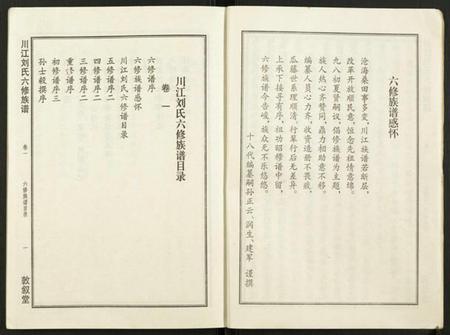 六修族谱感怀
沧海桑田事多变，川江族谱若断层，
改革开放顺民意，恒念先祖情意绵。
九八初夏贤嗣议，倡修族谱为主题，
族人热心齐赞同，鼎力相助意不移。
编纂人员心力齐，收资造册不畏疲，
瓜藤世系理顺清，行辈行后无差异。
上承下接寻有序，祖功昭修谱中留，
六修族谱今告竣，族众无不乐悠悠。
十八代编纂嗣孙正云、润生、建军 谨撰
川江刘氏六修族谱目录
卷一
六修谱序
六修族谱感怀
川江刘氏六修谱目录
五修谱序二
四修谱序二
三修谱序二
重修谱序
初修谱序三
孙士毅撰序
川江刘氏六修族谱
卷一
六修谱目录
一
敦叙堂